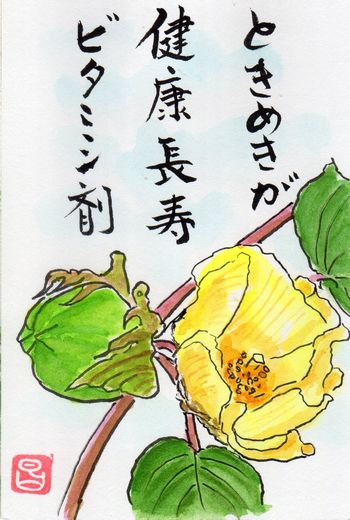 ときめきが
健康長寿
ビタミン剤
昌